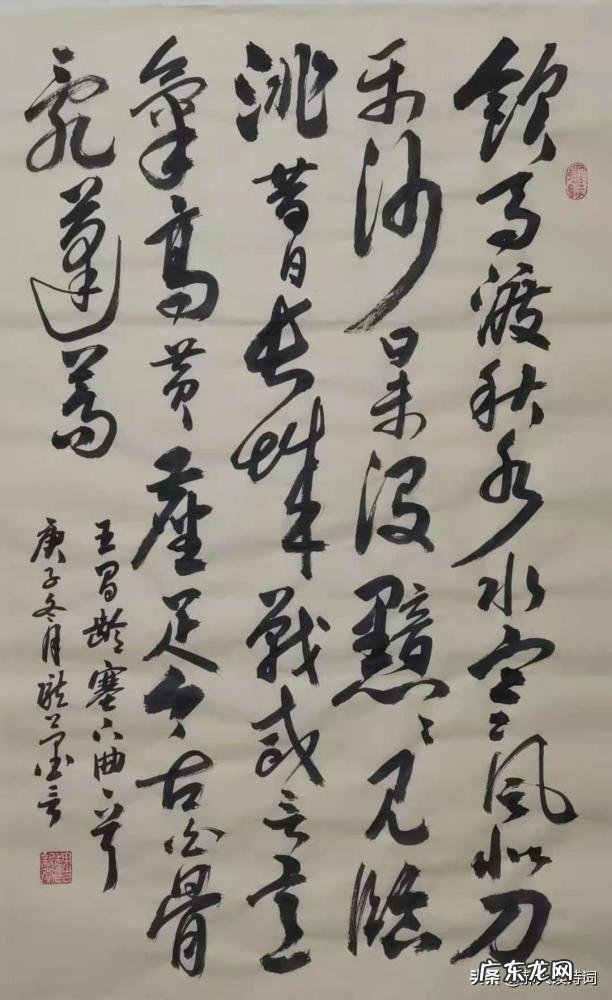 飲馬渡秋水水寒風似刀
平沙日未没黯〻見臨
洮昔日長城戰咸言意
氣高黄塵足今古白骨
亂蓬蒿
王昌齡塞下曲一首
庚子冬月
头条
诗词
广东龙网